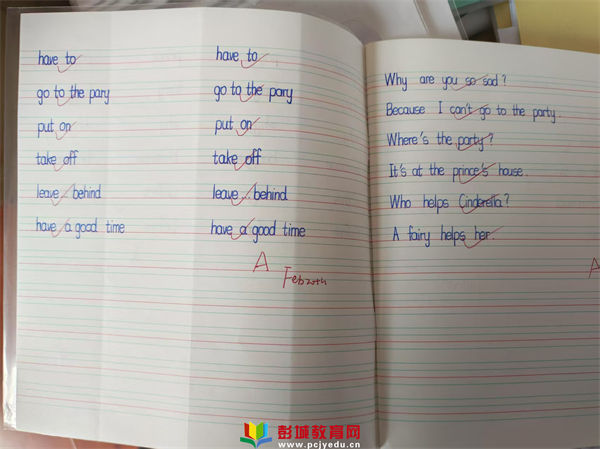 have to
go to the pary
put on
take off
leave...behind
have a good time
have to
go to the pary
put on
take off
leave...behind
have a good time
A
Feb 20th
Why are you so sad?
Because I can't go to the party.
Where's the party?
It's at the prince's house.
Who helps Cinderella?
A fairy helps her.
A
彭城教育网
www.pcjyedu.cn